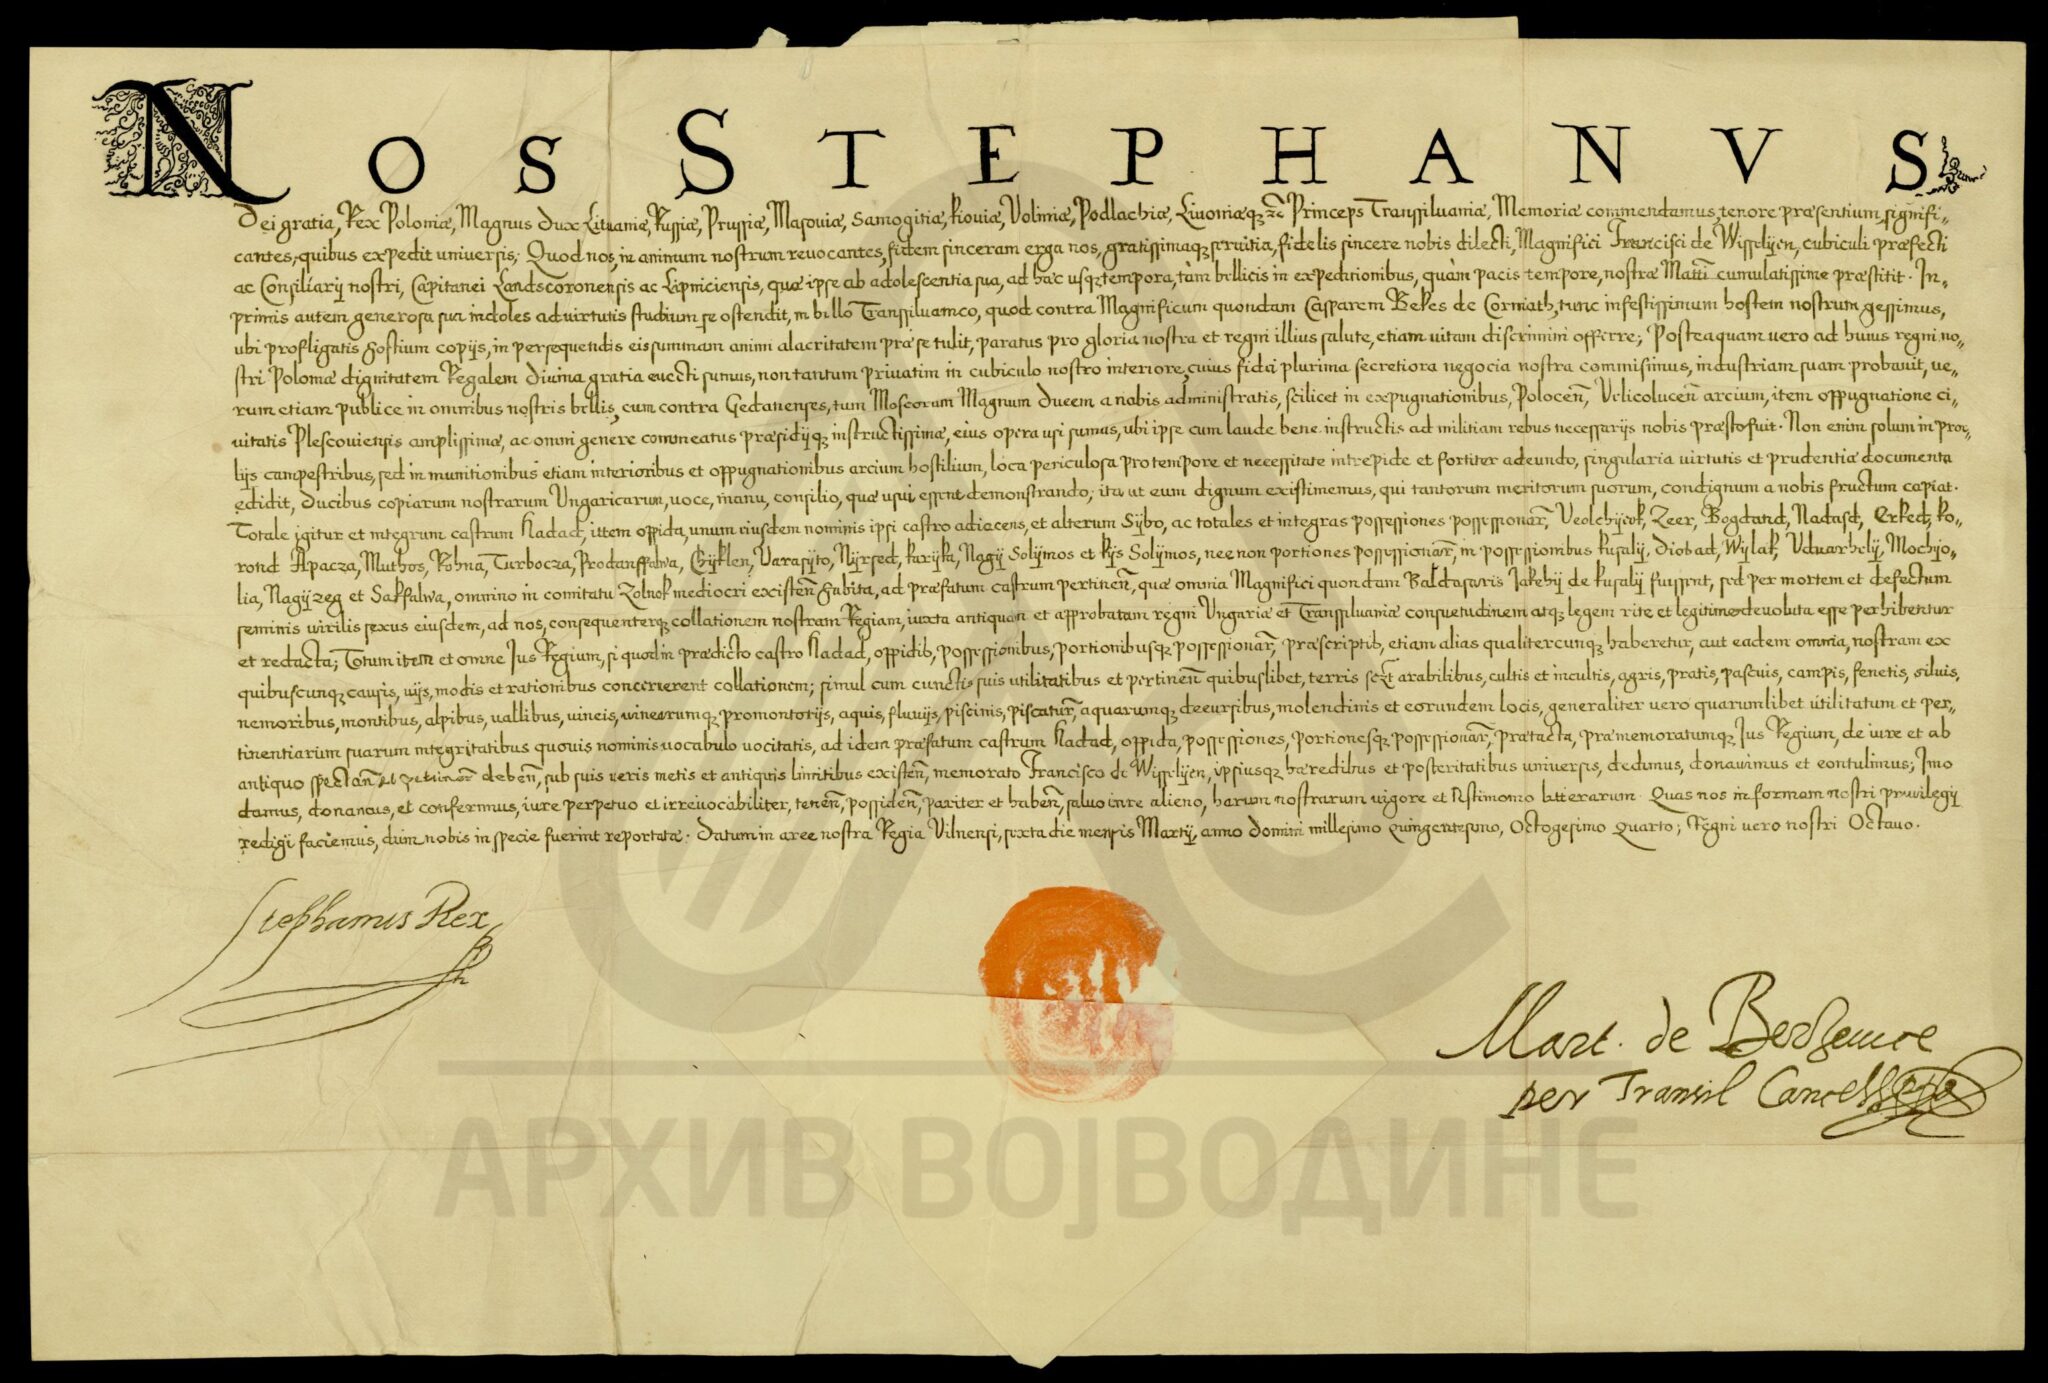 NOS STEPHANVS
Dei gratia, Rex Poloniæ, Magnus dux Lituaniæ, Russiæ, Prussiæ, Masouiæ, Samogitiæ, Kiouiæ, Voliniæ, Podlachiæ, Liuoniæq; Princeps Transsiluaniæ, Memoriæ commendamus, tenore præsentium, signifi-
cantes, quibus expedit uniuersis; Quod nos, in animum nostrum reuocantes, fidem sinceram erga nos, gratissimaq; seruitia, fidelis sincere nobis dilecti, Magnifici Francisci de Wisselijen, cubiculi præfecti
ac Consiliarij nostri, Capitanei Landscoronensis ac Lipniciensis, quæ ipse ab adolescentia sua, ad hæc usq; tempora, tàm bellicis in expeditionibus, quàm pacis tempore, nostræ cumulatissime præstitit. In-
primis autem generosa sua indoles ad uirtutis studium se ostendit, in bello Transsiluanico, quod contra Magnificum quondam Casparem Bekes de Corniath, tunc infestissimum hostem nostrum gessimus,
ubi profligatis hostium copijs, in persequendis eis summam animi alacritatem præ se tulit, paratus pro gloria nostra et regni illius salute, etiam uitam discrimini offerre; Posteaquam uero ad huius regni no-
stri Poloniæ dignitatem Regalem diuina gratia euecti sumus, non tantum priuatim in cubiculo nostro interiore, cuius fidei plurima secretiora negocia nostra commisimus, industriam suam probauit, ue-
rum etiam publice in omnibus nostris bellis, cum contra Gedanenses, tum Moscorum Magnum Ducem a nobis administratis, scilicet in expugnationibus, Polocen̄, Velicolucen̄ arcium, item oppugnatione ci-
uitatis Plescouiensis amplissimæ, ac omni genere commeatus præsidijq; instructissimæ, eius opera usi sumus, ubi ipse cum laude bene instructis ad militiam rebus necessarijs nobis præsto fuit. Non enim solum in proe-
lijs campestribus, sed in munitionibus etiam interioribus et oppugnationibus arcium hostilium, loca periculosa pro tempore et necessitate intrepide et fortiter adeundo, singularia uirtutis et prudentiæ documenta
edidit, ducibus copiarum nostrarum Ungaricarum, uoce, manu, consilio, quæ usui essent demonstrando; ita ut eum dignum existimemus, qui tantorum meritorum suorum, condignum a nobis fructum capiat.
Totale igitur et integrum castrum Hadad, ittem oppida, unum eiusdem nominis ipsi castro adiacens, et alterum Sÿbo, ac totales et integras possessiones possessionar̄, Zeer, Bogdand, Nadasd, Erked, Ko-
rond Apacza, Muthos, Rohna, Turbocza, Prodanffalwa, Chÿklen, Varasÿto, Nÿrsed, Karÿka, Nagÿ Solÿmos et Kÿs Solÿmos, nec non portiones possessionar̄, in possessionibus Kusalÿ, Diosad, Wÿlak, Vduarhelÿ, Mochÿo-
lia, Nagÿzeg et Sakfalwa, omnino in comitatu Zolnok mediocri existen̄ habita, ad præfatum castrum pertinen̄, quæ omnia Magnifici quondam Baldasaris Jakchÿ de Kusalÿ fuissent, sed per mortem et defectum
seminis uirilis sexus eiusdem, ad nos, consequenterq; collationem nostram Regiam, iuxta antiquam et approbatam regni Ungariæ et Transiluaniæ consuetudinem atq; legem rite et legitime deuoluta esse perhibentur
et redacta; Totum item et omne Jus Regium, si quod in prædicto castro Hadad, oppidis, possessionibus, portionibusq; possessionar̄, præscriptis, etiam alias qualitercunq; haberetur, aut eadem omnia, nostram ex
quibuscunq; causis, uijs, modis et rationibus concernerent collationem; simul cum cunctis suis utilitatibus et pertinen̄ quibuslibet, terris arabilibus, cultis et incultis, agris, pratis, pascuis, campis, fenetis, siluis,
nemoribus, montibus, alpibus, uallibus, uineis, uinearumq; promontorijs, aquis, fluuijs, piscinis, piscatur̄, aquarumq; decursibus, molendinis et eorundem locis, generaliter uero quarumlibet utilitatum et per-
tinentiarum suarum integritatibus quouis nominis uocabulo uocitatis, ad idem præfatum castrum Hadad, oppida, possessiones, portionesq; possessionar̄, prætacta, præmemoratumq; Jus Regium, de iure et ab
antiquo spectan̄ et deben̄, sub suis ueris metis et antiquis limitibus existen̄, memorato Francisco de Wisselijen, ipsiusq; hæredibus et posteritatibus uniuersis, dedimus, donauimus et contulimus; Imo
damus, donamus, et conferimus, iure perpetuo et irreuocabiliter, tenen̄, possiden̄, pariter et haben̄, saluo iure alieno, harum nostrarum uigore et testimonio litterarum. Quas nos in formam nostri priuilegij
redigi faciemus, dum nobis in specie fuerint reportatæ. Datum in arce nostra Regia Vilnensi, sexta die mensis Martij, anno domini millesimo Quingentesimo, Octogesimo Quarto; Regni uero nostri Octauo.
Stephanus Rex
Mart. de Berzeuice
per Transil Cancell
АРХИВ ВОЈВОДИНЕ